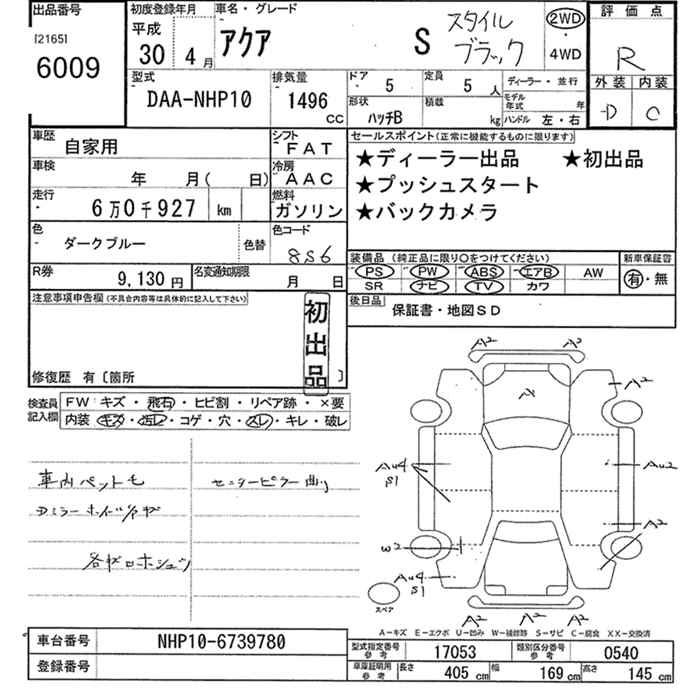 出品番号
[2165]
6009
初度登録年月
平成
30 4月
車名・グレード
アクア S スタイル ブラック
2WD
・
4WD
評価点
R
外装 内装
-D C
型式
DAA-NHP10
排気量
1496 CC
ドア 5
定員 5 人
ディーラー・並行
形状 ハッチB
積載 kg
モデル年式 年
ハンドル 左・右
車歴 自家用
シフト FAT
車検 年 月( 日)
冷房 AAC
走行 6万0千927 km
燃料 ガソリン
色 ダークブルー 色替
色コード 8S6
R券 9,130円
名変通知期限 月 日
セールスポイント(正常に機能するものに限ります)
★ディーラー出品 ★初出品
★プッシュスタート
★バックカメラ
装備品 (純正品に限り○をつけてください)
PS PW ABS エアB AW
SR ナビ TV カワ
新車保証書
有・無
後日品 保証書・地図SD
注意事項申告欄(不具合内容等は具体的に記入して下さい)
初出品
修復歴 有〔箇所 〕
検査員記入欄
FW キズ・飛石・ヒビ割・リペア跡・×要
内装 キズ・汚レ・コゲ・穴・スレ・キレ・破レ
車内ペット毛
センターピラー曲り
A2 A2
A2
Au4
S1
Au2
A2
W2
Au4
S1
スペア
A2 A2 A2
A-キズ E-エクボ U-凹み W-補修跡 S-サビ C-腐食 XX-交換済
車台番号 NHP10-6739780
登録番号
型式指定番号 参考 17053
類別区分番号 参考 0540
車庫証明用 参考 長さ 405 cm 幅 169 cm 高さ 145 cm